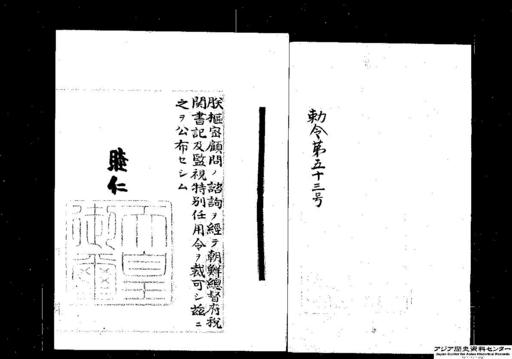 勅令第五十三号
朕枢密顧問ノ諮詢ヲ経テ朝鮮総督府税
関書記及監視特別任用令ヲ裁可シ茲ニ
之ヲ公布セシム
睦仁
天皇
御璽
アジア歴史資料センター
Japan Center for Asian Historical Records